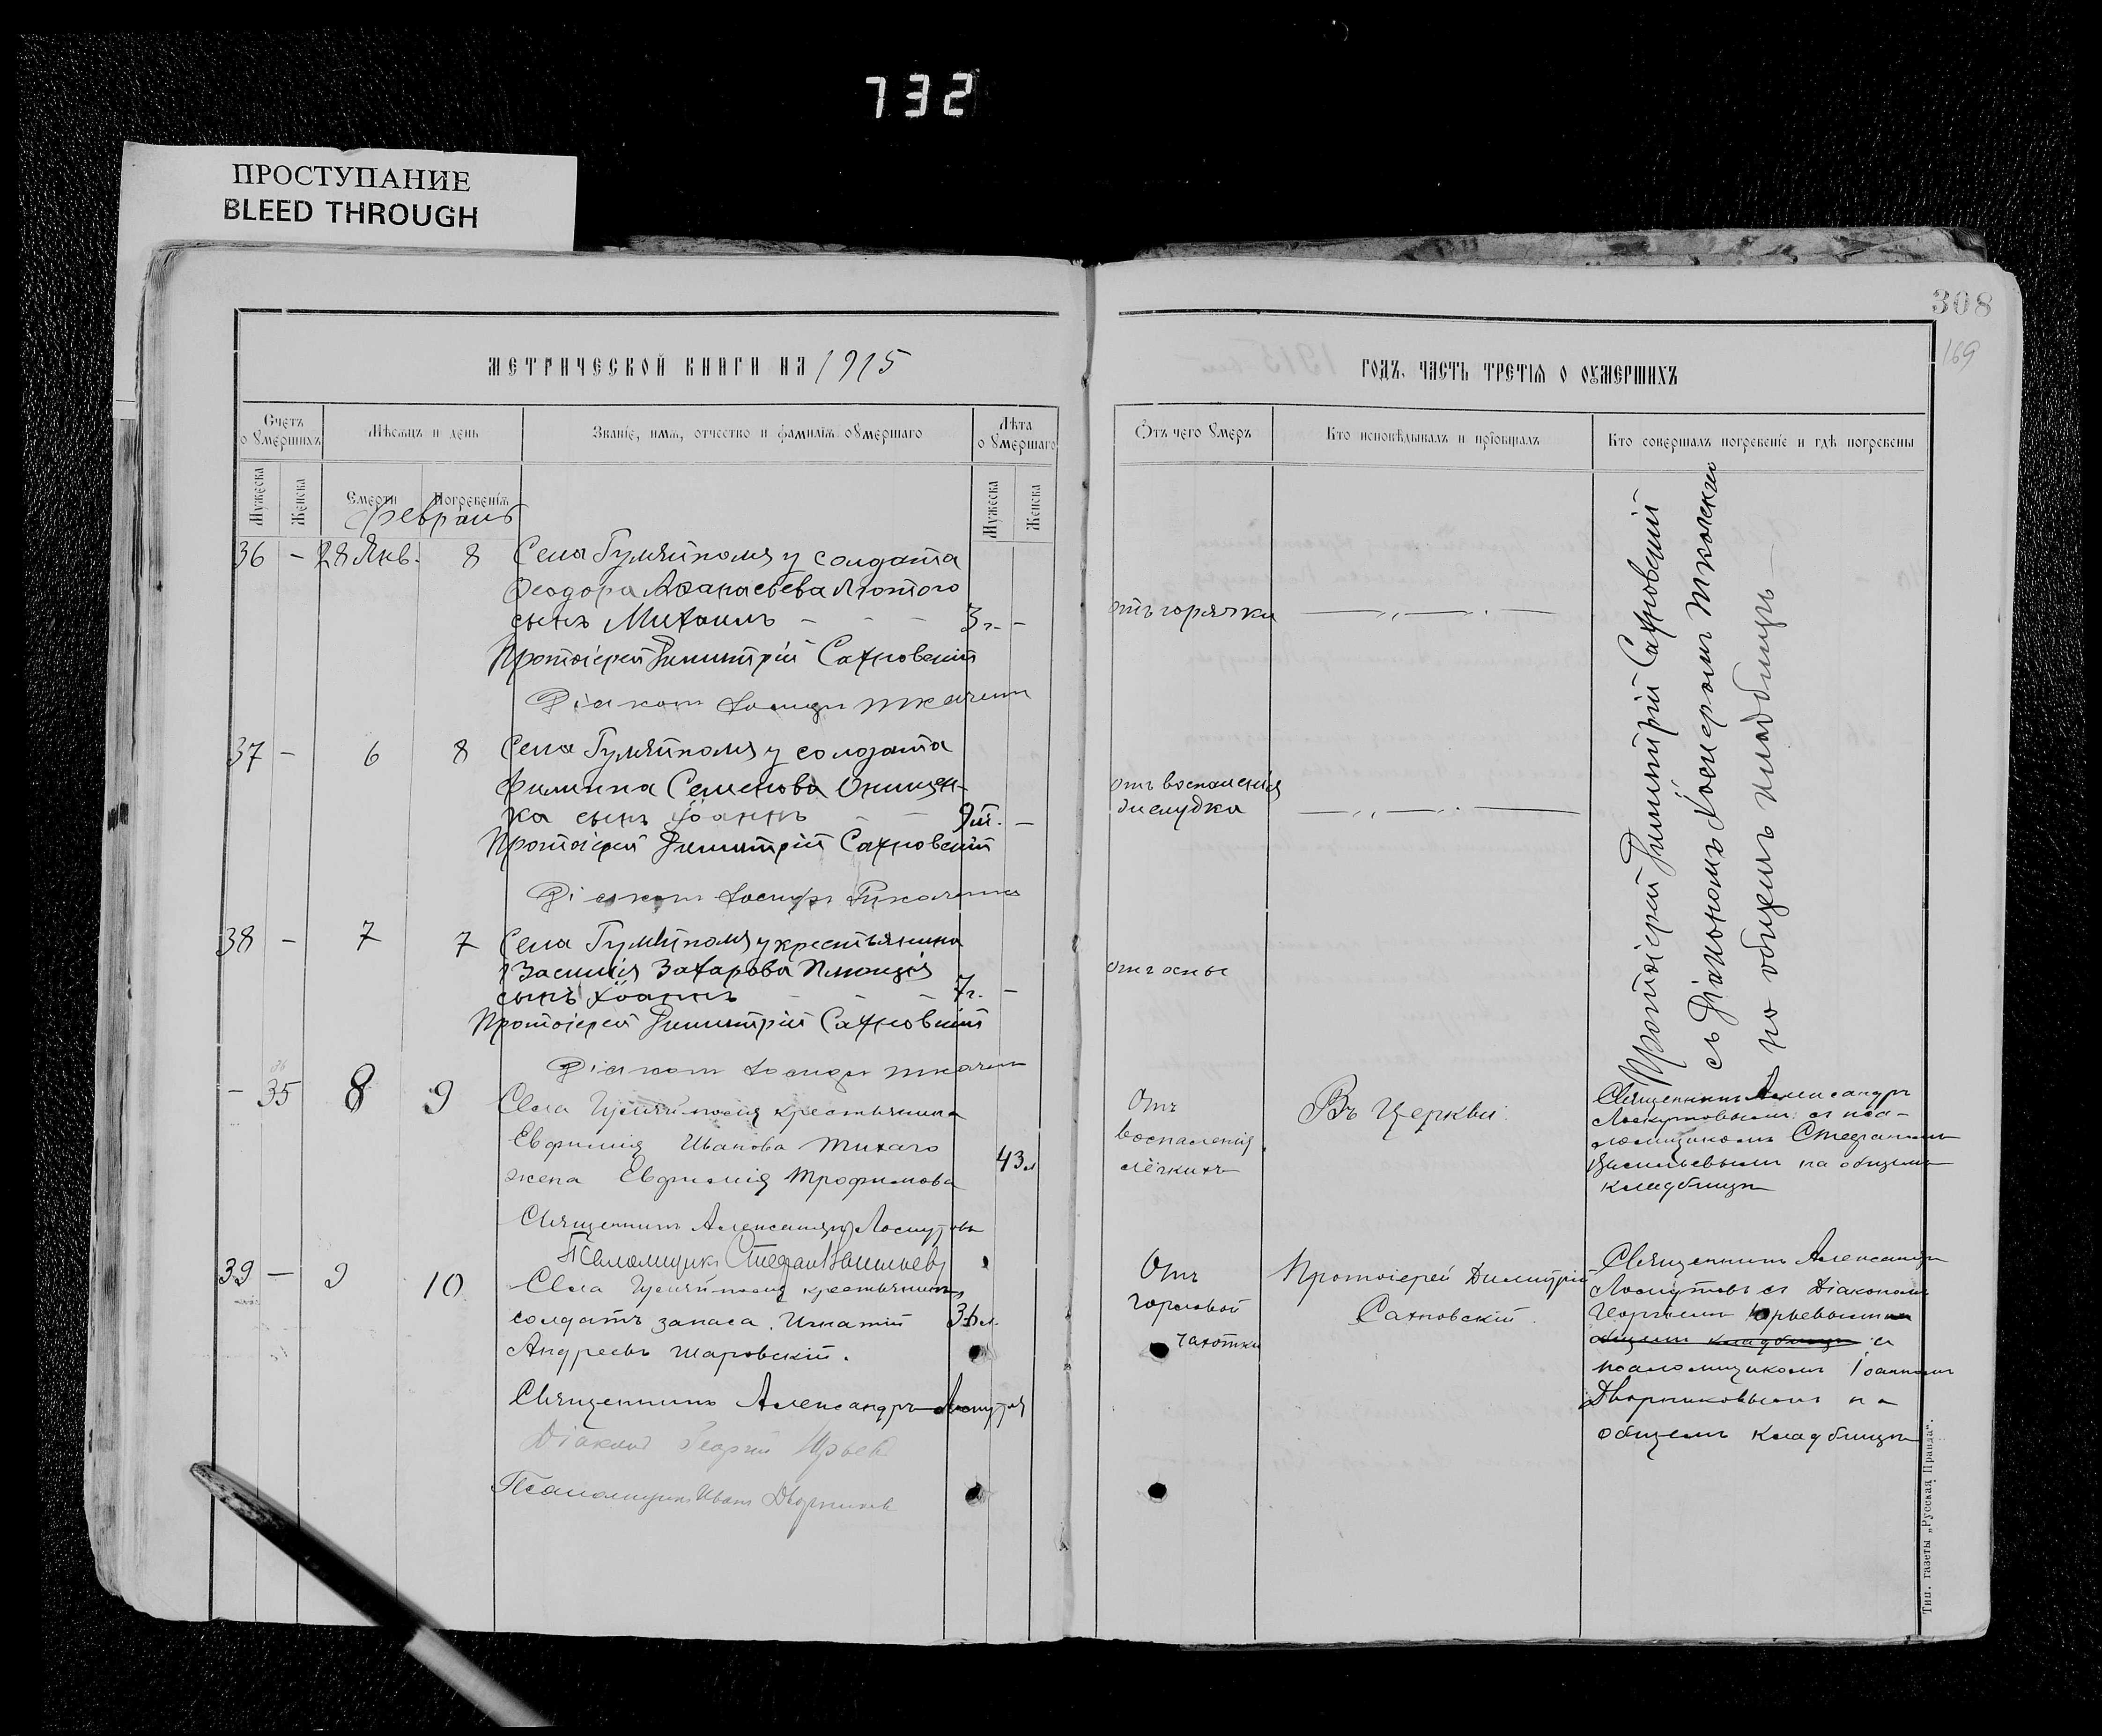 732
ПРОСТУПАНИЕ
BLEED THROUGH
308
169
МЕТРИЧЕСКОЙ КНИГИ НА 1915
ГОДЪ, ЧАСТЬ ТРЕТІѦ О ОУМЕРШИХЪ
Счетъ о Умершихъ
Мѣсяцъ и день
Званіе, имѧ, отчество и фамиліѧ оумершаго
Лѣта о Умершаго
Отъ чего Умеръ
Кто исповѣдывалъ и пріобщалъ
Кто совершалъ погребеніе и гдѣ погребены
Мужеска
Женска
Смерти
Погребеніѧ
Мужеска
Женска
Февраль
36 – 28 Янв. 8 Села Гуляйполя у солдата
Феодора Афанасьева Лютого
сынъ Михаилъ – – – 3 г. –
отъ горячки
Протоіерей Димитрій Сахновскій
Діаконъ Іосифъ Ткаченко
37 – 6 8 Села Гуляйполя у солдата
Филиппа Семенова Онищен-
ка сынъ Іоаннъ – – 9 м. –
отъ воспаленія
желудка
Протоіерей Димитрій Сахновскій
Діаконъ Іосифъ Ткаченко
38 – 7 7 Села Гуляйполя у крестьянина
Василія Захарова
сынъ Іоаннъ – – – 7 г. –
отъ оспы
Протоіерей Димитрій Сахновскій
Діаконъ Іосифъ Ткаченко
Протоіерей Димитрій Сахновскій
съ Діакономъ Іосифомъ
на общемъ кладбищѣ –
36
– 35 8 9 Села Гуляйполя крестьянина
Евфимія Иванова Тихаго
жена Евфимія Трофимова
43 л
Отъ
воспаленія
лёгкихъ
Въ Церкви
Священникъ Александръ
Лоскутовымъ съ пса-
ломщикомъ Стефаномъ
Васильевымъ на общемъ
кладбищѣ
Священникъ Александръ Лоскутовъ
Псаломщикъ Стефанъ Васильевъ
39 – 9 10 Села Гуляйполя крестьянинъ,
солдатъ запаса Игнатій 36 л.
Андреевъ Шаровскій.
Отъ
горловой
чахотки
Протоіерей Димитрій
Сахновскій.
Священникъ Александръ
Лоскутовъ съ Діакономъ
Георгіемъ Юрьевымъ на
общемъ кладбищѣ съ
псаломщикомъ Іоанномъ
Дворниковымъ на
общемъ кладбищѣ
Священникъ Александръ Лоскутовъ
Діаконъ Георгій Юрьевъ
Псаломщикъ Иванъ Дворниковъ
Тип. газеты „Русская Правда“.